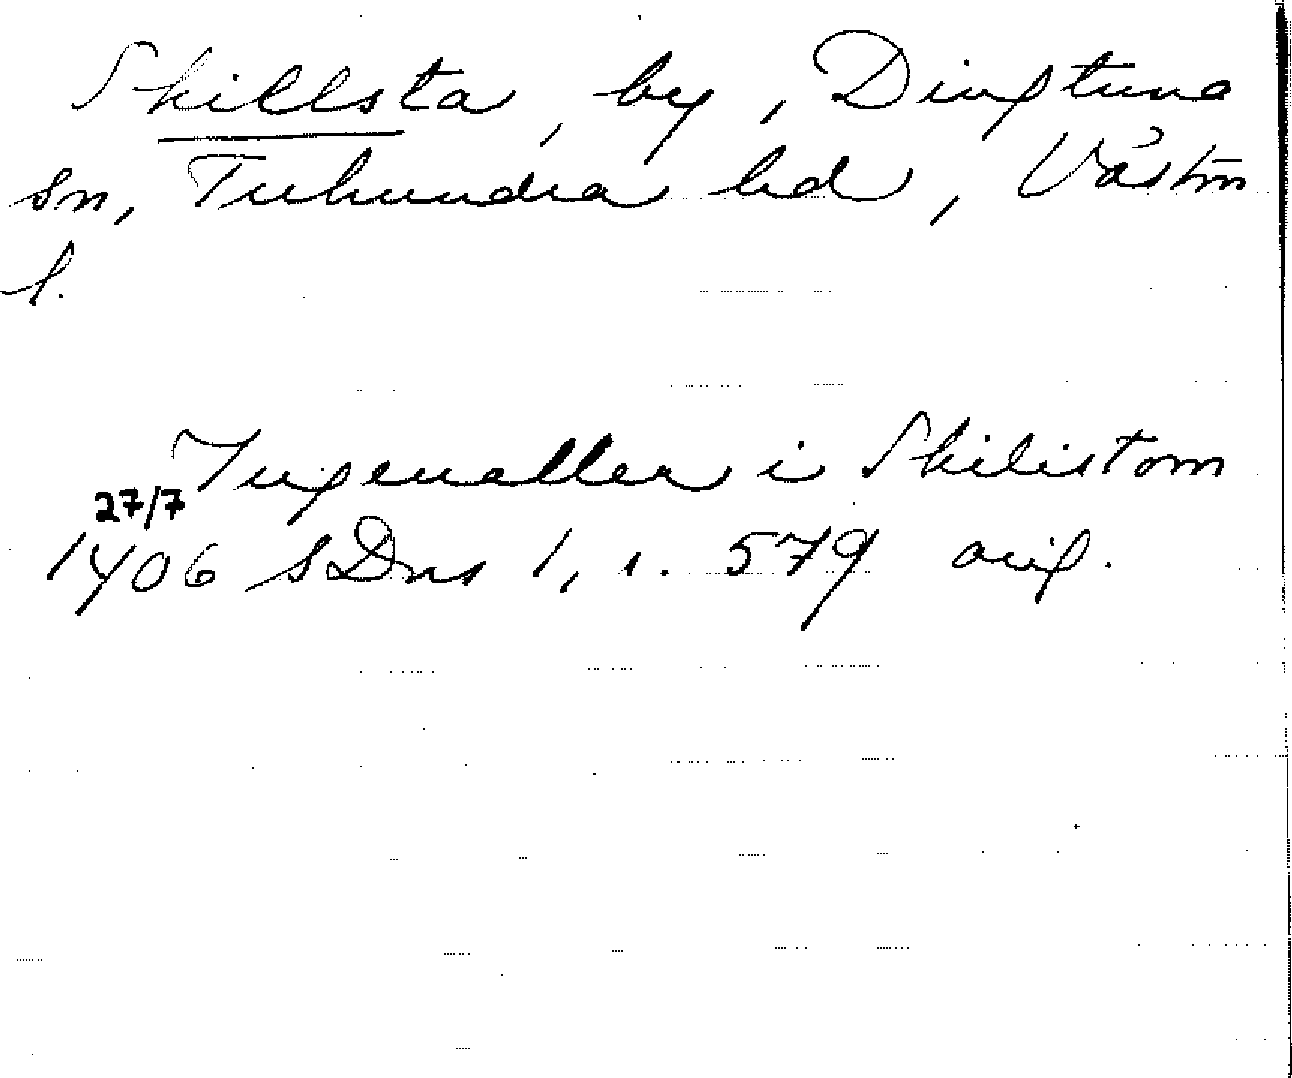 Skillsta, by, Dingtuna
sn, Tuhundra hd, Västm
l.
Ingewaller i Skilistom
27/7
1406 SDns 1, s. 579 orig.